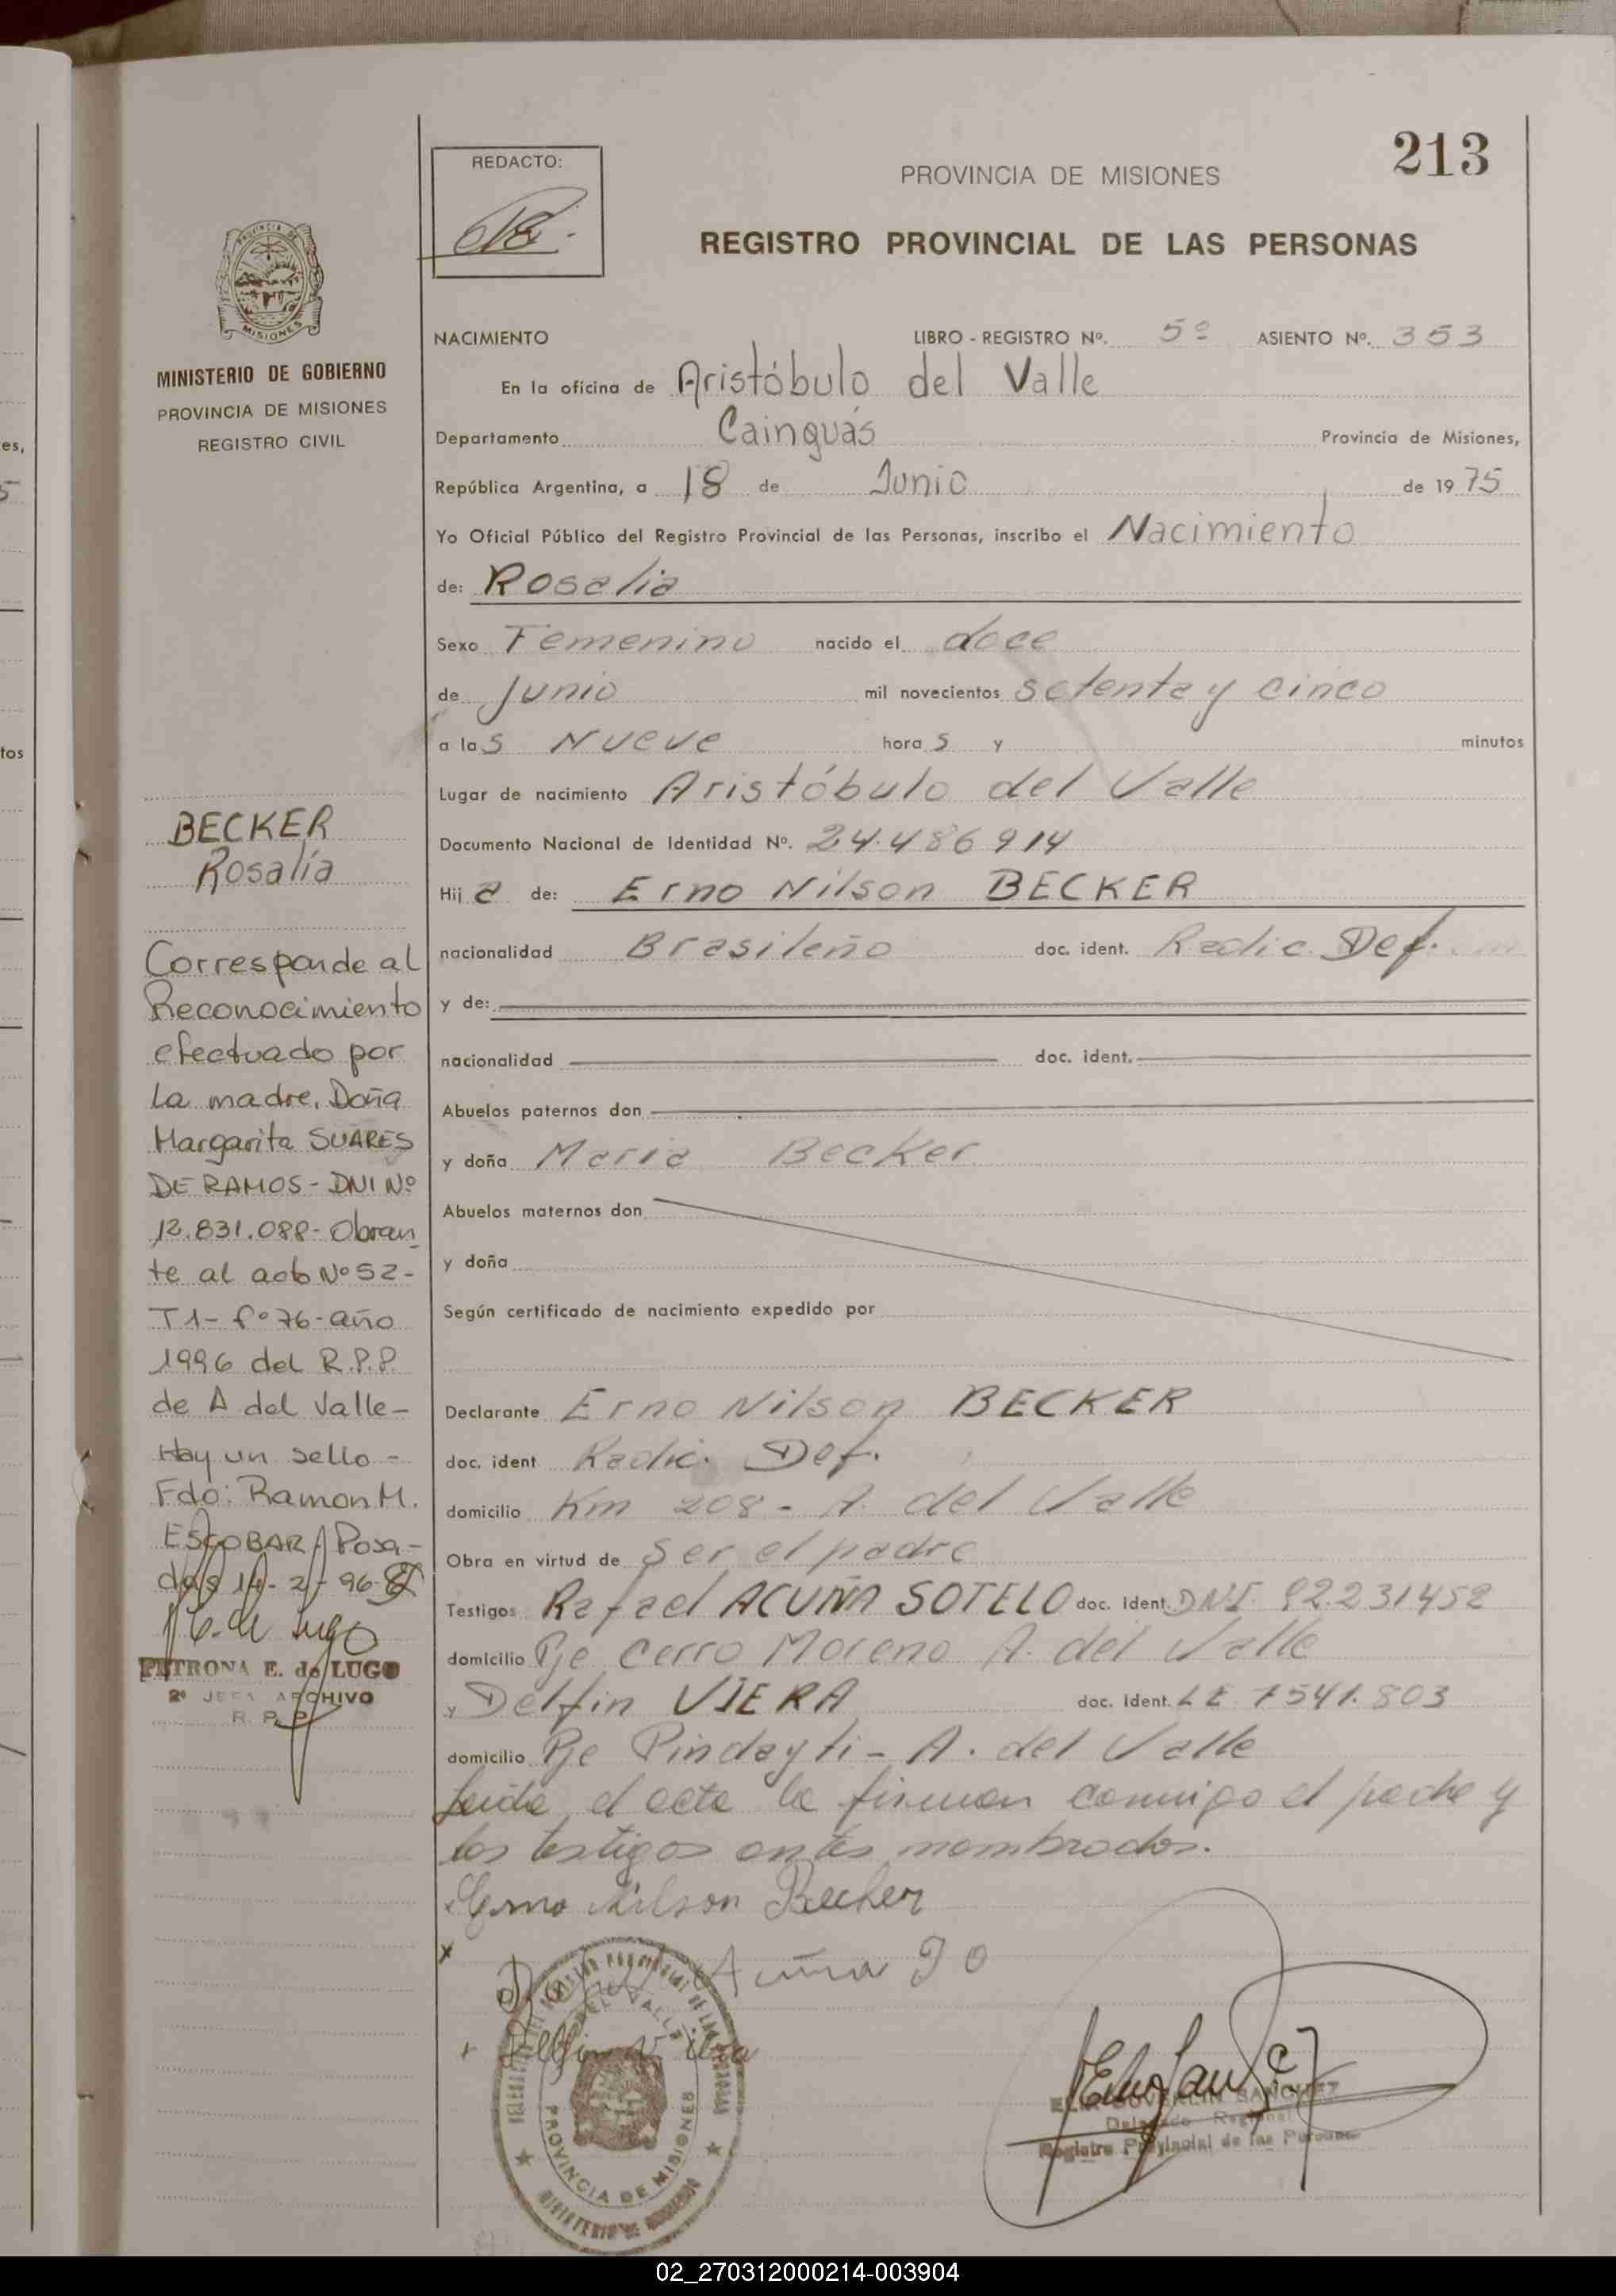 213
REDACTO:
PROVINCIA DE MISIONES
REGISTRO PROVINCIAL DE LAS PERSONAS
PROVINCIA DE
MISIONES
MINISTERIO DE GOBIERNO
PROVINCIA DE MISIONES
REGISTRO CIVIL
NACIMIENTO LIBRO - REGISTRO Nº. 5º ASIENTO Nº. 353
En la oficina de Aristóbulo del Valle
Departamento Cainguás Provincia de Misiones,
República Argentina, a 18 de Junio de 1975
Yo Oficial Público del Registro Provincial de las Personas, inscribo el Nacimiento
de: Rosalia
Sexo Femenino nacido el doce
de Junio mil novecientos setenta y cinco
a las Nueve horas y minutos
Lugar de nacimiento Aristóbulo del Valle
Documento Nacional de Identidad Nº. 24.486914
Hija de: Erno Nilson BECKER
nacionalidad Brasileño doc. ident. Radic. Def.
y de:
nacionalidad doc. ident.
Abuelos paternos don
y doña Maria Becker
Abuelos maternos don
y doña
Según certificado de nacimiento expedido por
Declarante Erno Nilson BECKER
doc. ident Radic. Def.
domicilio Km 208 - A. del Valle
Obra en virtud de ser el padre
Testigos Rafael ACUÑA SOTELO doc. Ident. DNI. 92.231452
domicilio Pje Cerro Moreno A. del Valle
y Delfin VIERA doc. Ident. LE 7541.803
domicilio Pje Pindayti - A. del Valle
Leida el acta la firman conmigo el padre y
los testigos antes nombrados.
Erno Nilson Becker
Acuña
Delfin Viera
PROVINCIA DE MISIONES
SANCHEZ
Delegado Regional
Registro Provincial de las Personas
BECKER
Rosalía
Corresponde al
Reconocimiento
efectuado por
la madre, Doña
Margarita SUARES
DE RAMOS - DNI Nº
12.831.088 - Obran
te al acto Nº 52 -
T 1 - fº 76 - año
1996 del R.P.P.
de A del Valle -
Hay un sello -
Fdo: Ramon M.
ESCOBAR - Posa -
das 14 - 2 - 96 -
PETRONA E. de LUGO
2ª JEFA ARCHIVO
R. P. P.
es,
5
tos
02_270312000214-003904